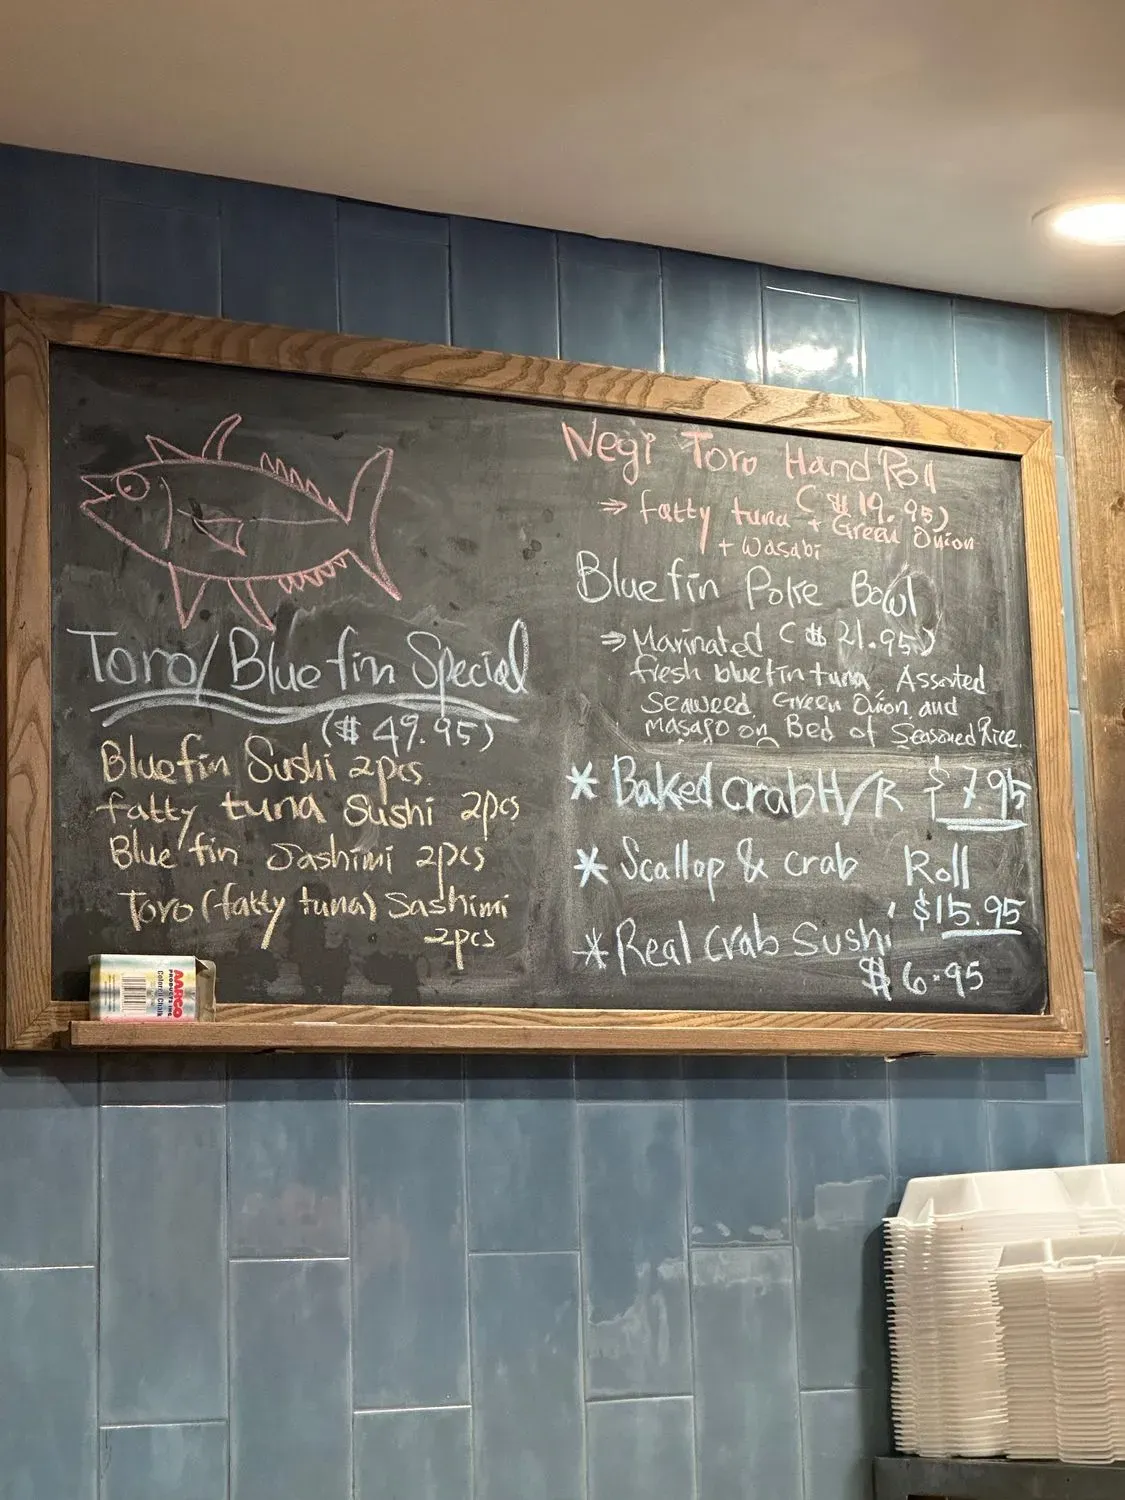 Toro/Bluefin Special
($49.95)
Bluefin Sushi 2pcs
fatty tuna Sushi 2pcs
Bluefin Sashimi 2pcs
Toro (fatty tuna) Sashimi
2pcs
Negi Toro Hand Roll
($19.95)
⇒ fatty tuna + Green Onion
+ Wasabi
Bluefin Poke Bowl
⇒ Marinated ($21.95)
fresh bluefin tuna Assorted
Seaweed, Green Onion and
masago on Bed of Seasoned Rice.
* Baked crab H/R $7.95
* Scallop & crab Roll
$15.95
* Real crab Sushi
$6.95
AARCO
PRODUCTS INC.
Colored Chalk